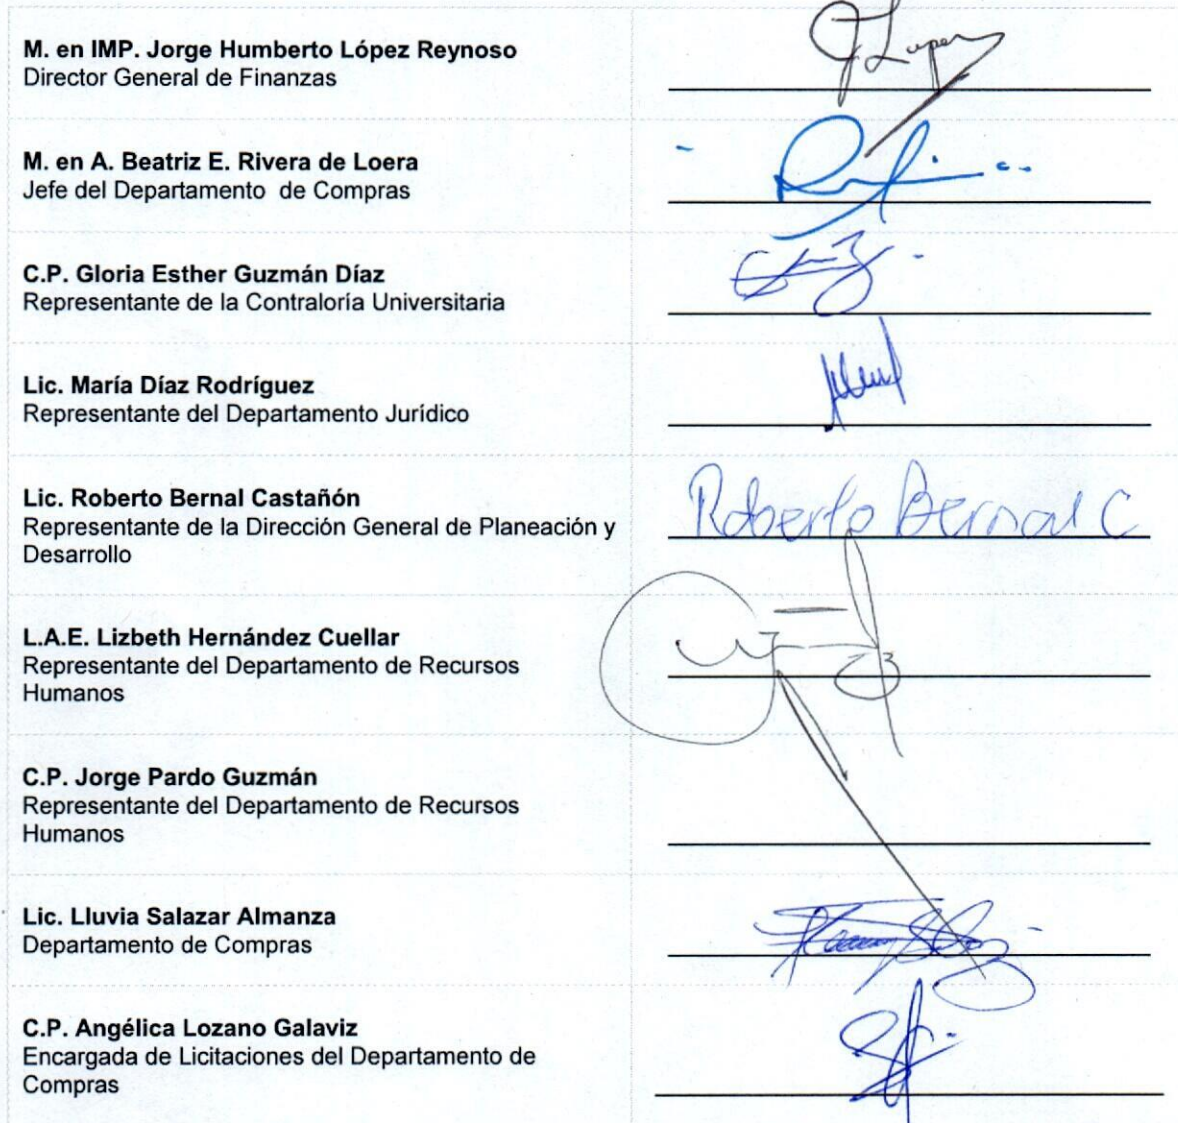 M. en IMP. Jorge Humberto López Reynoso
Director General de Finanzas
J Lopez
M. en A. Beatriz E. Rivera de Loera
Jefe del Departamento de Compras
C.P. Gloria Esther Guzmán Díaz
Representante de la Contraloría Universitaria
Lic. María Díaz Rodríguez
Representante del Departamento Jurídico
Lic. Roberto Bernal Castañón
Representante de la Dirección General de Planeación y
Desarrollo
Roberto Bernal C
L.A.E. Lizbeth Hernández Cuellar
Representante del Departamento de Recursos
Humanos
C.P. Jorge Pardo Guzmán
Representante del Departamento de Recursos
Humanos
Lic. Lluvia Salazar Almanza
Departamento de Compras
C.P. Angélica Lozano Galaviz
Encargada de Licitaciones del Departamento de
Compras